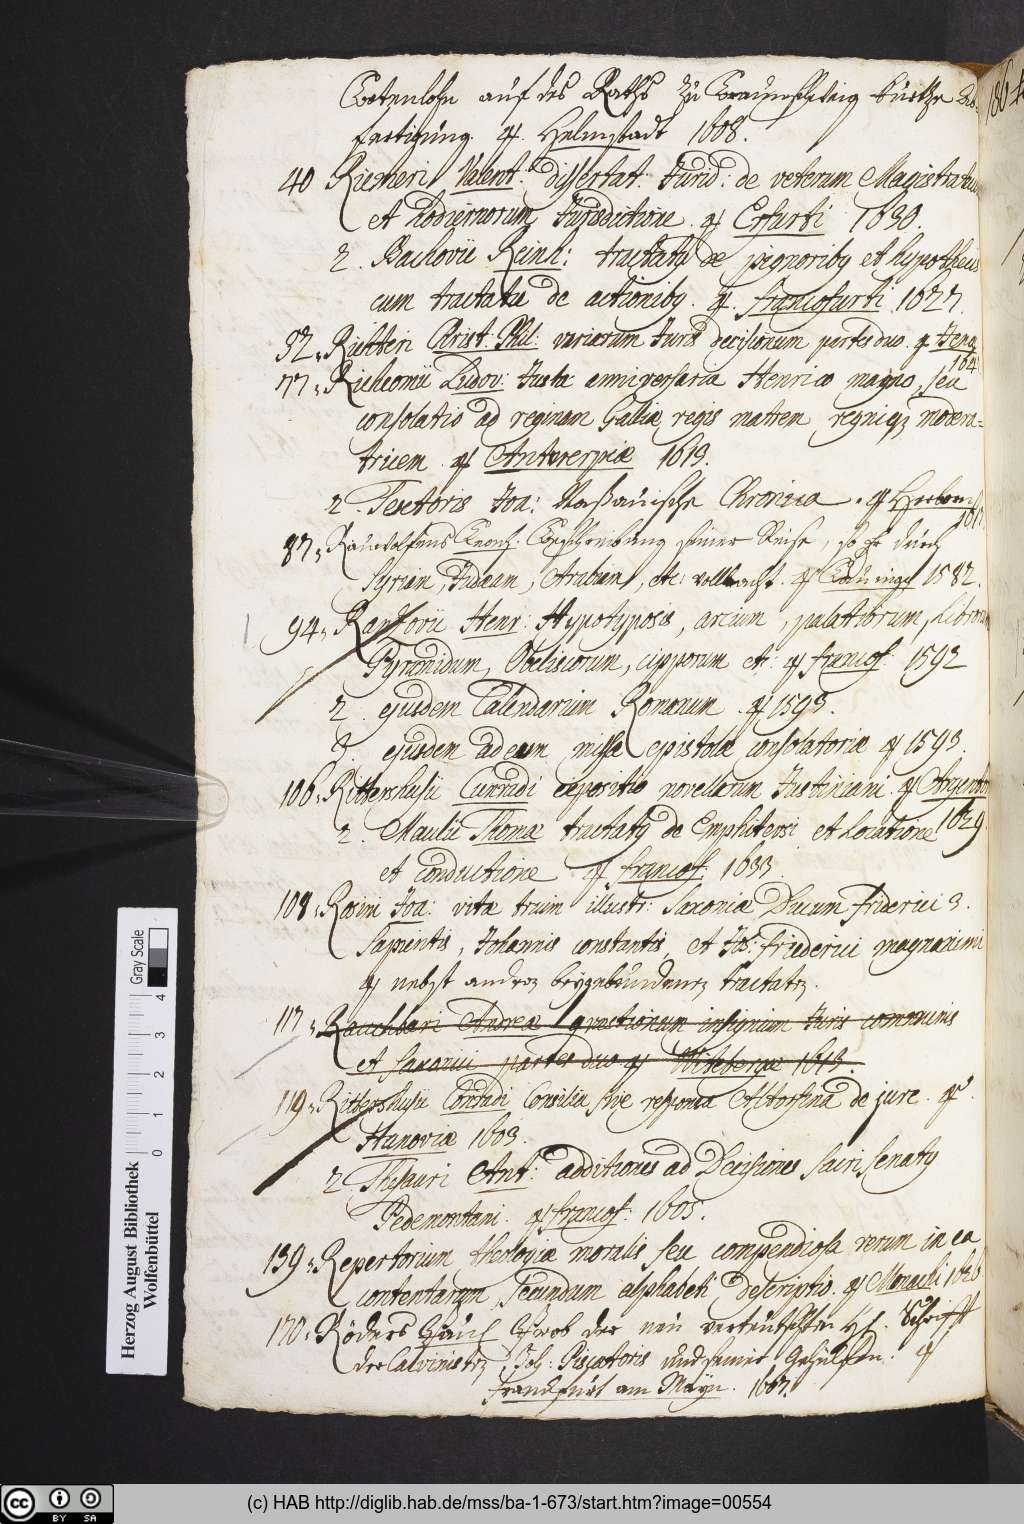 auf des Raths zu Braunschweig kurtze Ab-
fertigung. 4. Helmstadt 1608.
186
40 Riemeri Valent: dissertat: Jurid: de veterum Magistratuum
et hodiernorum Jurisdictione. 4 Erfurti 1630.
2. Bachovii Reinh: tractatus de pignoribus et hypothecis
cum tractatu de actionibus. 4. Francofurti 1627.
52. Richteri Christ: Phil: variorum Juris decisionum partes duo. 4 Jenae
164
77. Richeomii Ludov: Justa anniversaria Henrico magno, seu
consolatio ad reginam Galliae regis matrem regniq3 modera-
tricem. 4 Antwerpiae 1613.
2. Textoris Joa: Naßauische Chronica. 4 Herborn
1617
87. Rauwolfens Leonh: Beschreibung seiner Reise, so Er durch
Syriam, Judaeam, Arabiam, etc: vollbracht. 4 1582.
94. Ranzovii Henr: Hypotyposis, arcium, palatiorum, Librorum
Pyramidum, Obeliscorum, cipporum etc: 4 Francof: 1592
2. ejusdem Calendarium Romanum. 4 1593.
3. ejusdem ad eum missae epistolae consolatoriae 4 1593.
106. Rittershusii Cunradi expositio novellarum Justiniani. 4 Argentor
2. Maulii Thomae tractatus de Emphiteusi et Locatione 1629
et conductione 4 Francof: 1633.
108. Rosini Joa: vitae trium illustr: Saxoniae Ducum Friderici 3.
Sapientis, Johannis constantis, et Jo: Friederici magnanimi
4 nebst andern beygebundenen tractaten.
117. Rauchbari Andreae quaestionum insignium Juris communis
et Saxonici partes duo 4 Witebergae 1613.
119. Rittershusii Conradi Consilia sive responsa Altorfina de jure. 4.
Hanoviae 1603.
2. Thesauri Ant: additiones ad Decisiones Sacri Senatus
Pedemontani. 4 Francof: 1605.
139. Repertorium theologiae moralis seu compendiosa rerum in ea
contentarum, secundum alphabeti descriptio. 4 Monachi 1626
170. Röders Prob der neu verteutschten Hl. Schrifft
der Calvinisten, Joh: Piscatoris und seiner Gehülffen. 4
Franckfurt am Mayn. 1607.
Herzog August Bibliothek
Wolfenbüttel
Gray Scale
0 1 2 3 4
cc BY SA
(c) HAB http://diglib.hab.de/mss/ba-1-673/start.htm?image=00554